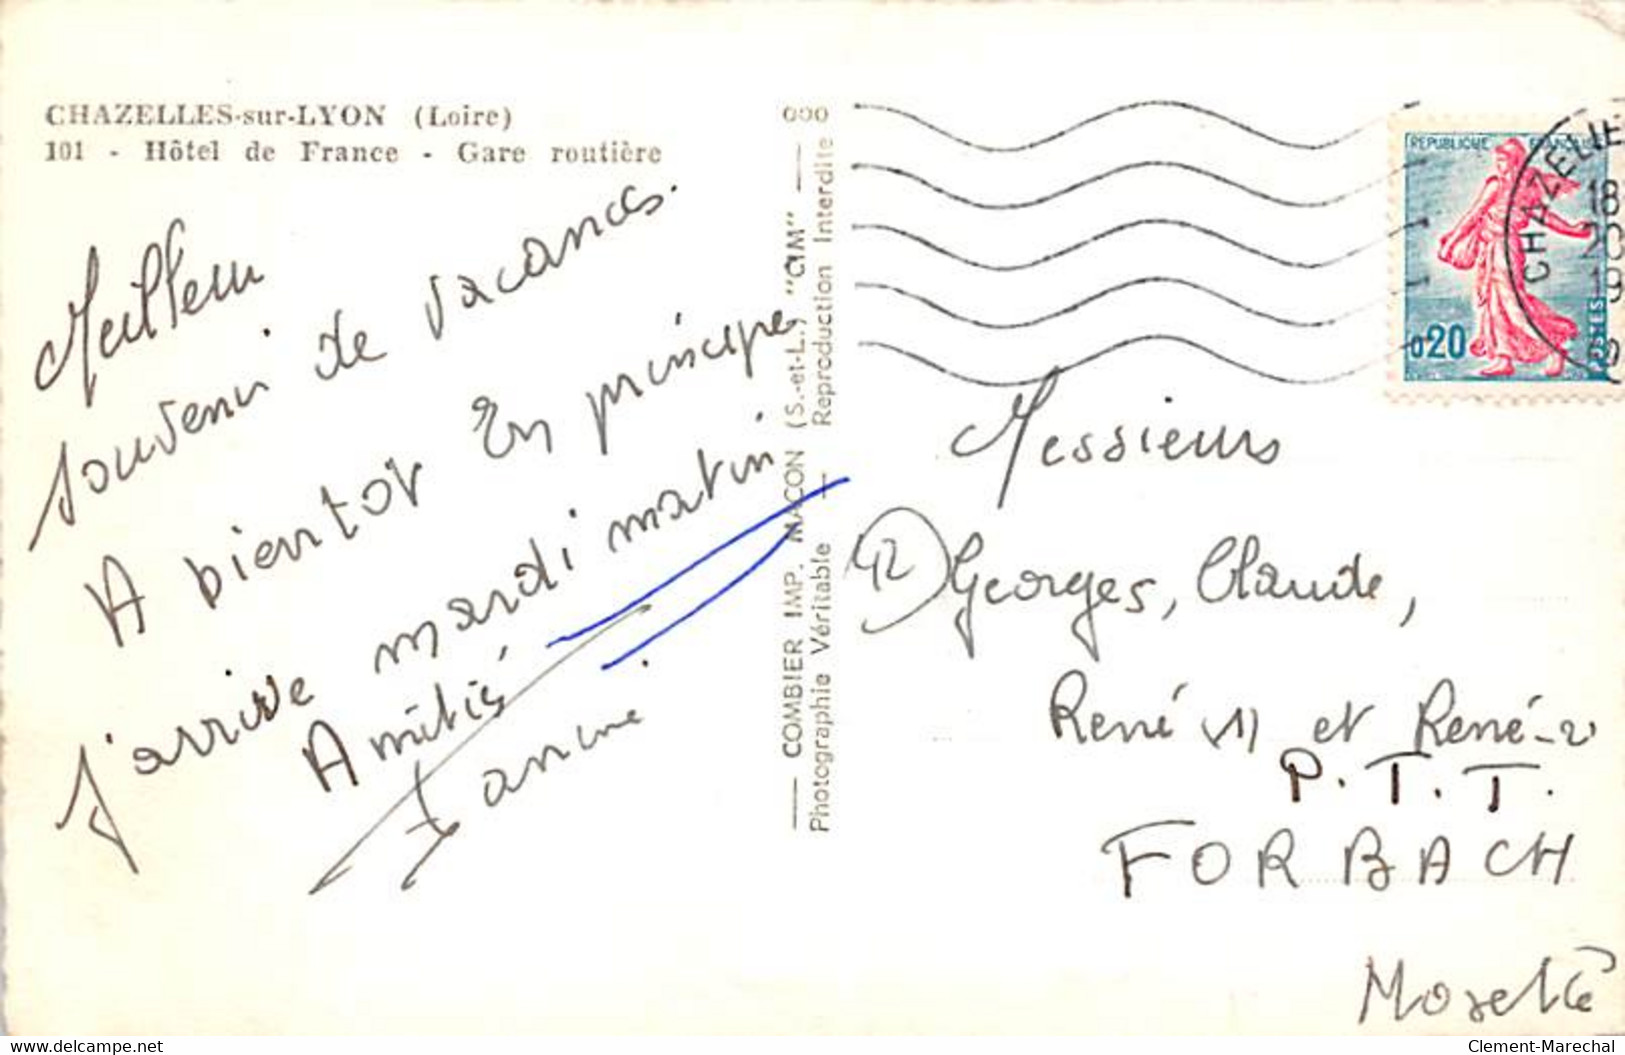 CHAZELLES-sur-LYON (Loire)
101 - Hôtel de France - Gare routière
Meilleur
souvenir de vacances.
A bientôt En principe
j'arrive mardi matin
Amitiés
COMBIER IMP. MACON (S.-et-L.) "CIM"
Photographie Véritable — Reproduction Interdite
REPUBLIQUE FRANÇAISE
0,20
POSTES
CHAZELLE
18
20
19
Messieurs
42
Georges, Claude,
René (1) et René-2
P.T.T.
FORBACH
Moselle
Clement-Marechal
www.delcampe.net